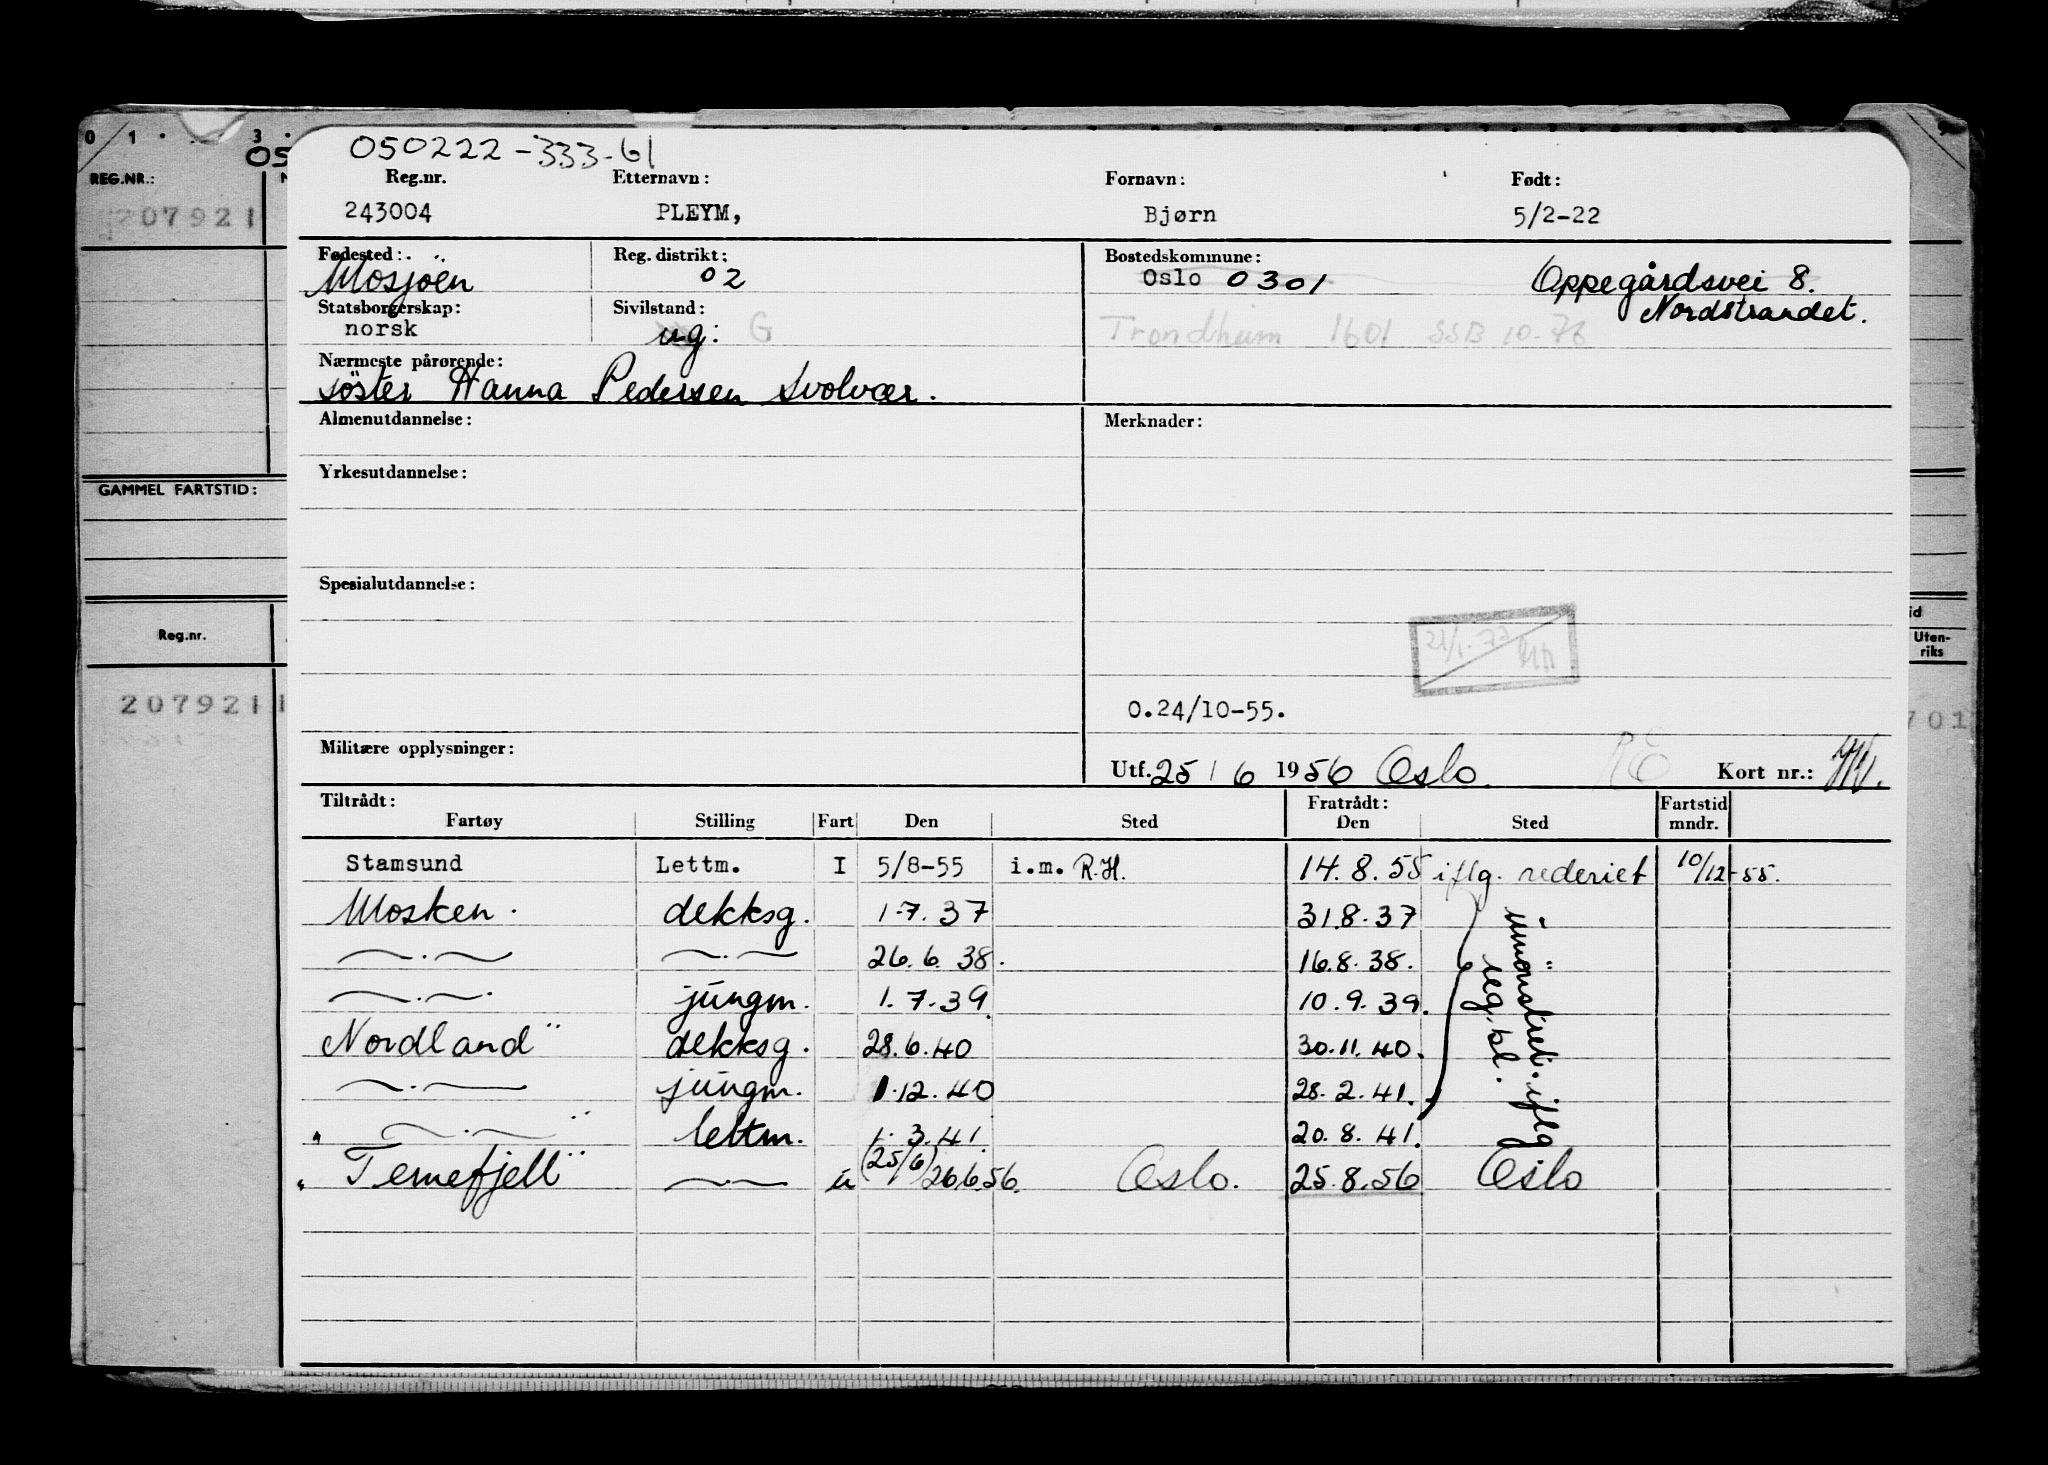 0 1 3
05
REG.NR.:
207921
GAMMEL FARTSTID:
Reg.nr.
207921 1
id
Uten-
riks
701
050222-333-61
Reg.nr. Etternavn: Fornavn: Født:
243004 PLEYM, Bjørn 5/2-22
Fødested: Reg. distrikt: Bostedskommune:
Mosjöen 02 Oslo 0301 Oppegårdsvei 8.
Statsborgerskap: Sivilstand: Nordstrandet.
norsk ug: G Trondheim 1601 SSB 10-76
Nærmeste pårørende:
söster Hanna Pedersen Svolvær.
Almenutdannelse: Merknader:
Yrkesutdannelse:
Spesialutdannelse:
21/1-77
0.24/10-55.
Militære opplysninger:
Utf. 25/6 1956 Oslo. RE Kort nr.:
Tiltrådt: Fratrådt: Fartstid
Fartøy Stilling Fart Den Sted Den Sted mndr.
Stamsund Lettm. I 5/8-55 i.m. R.H. 14.8.55 iflg. rederiet 10/12-55.
Mosken. dekksg. 1.7.37 31.8.37
—.— —.— 26.6.38. 16.8.38.
—.— jungm. 1.7.39. 10.9.39.
Nordland" dekksg. 28.6.40 30.11.40.
—.— jungm. 1.12.40 28.2.41.
" —.— " lettm. 1.3.41. 20.8.41.
iflg
reg.bl.
"Ternefjell" —.— u (25/6) 26.6.56. Oslo. 25.8.56 Oslo